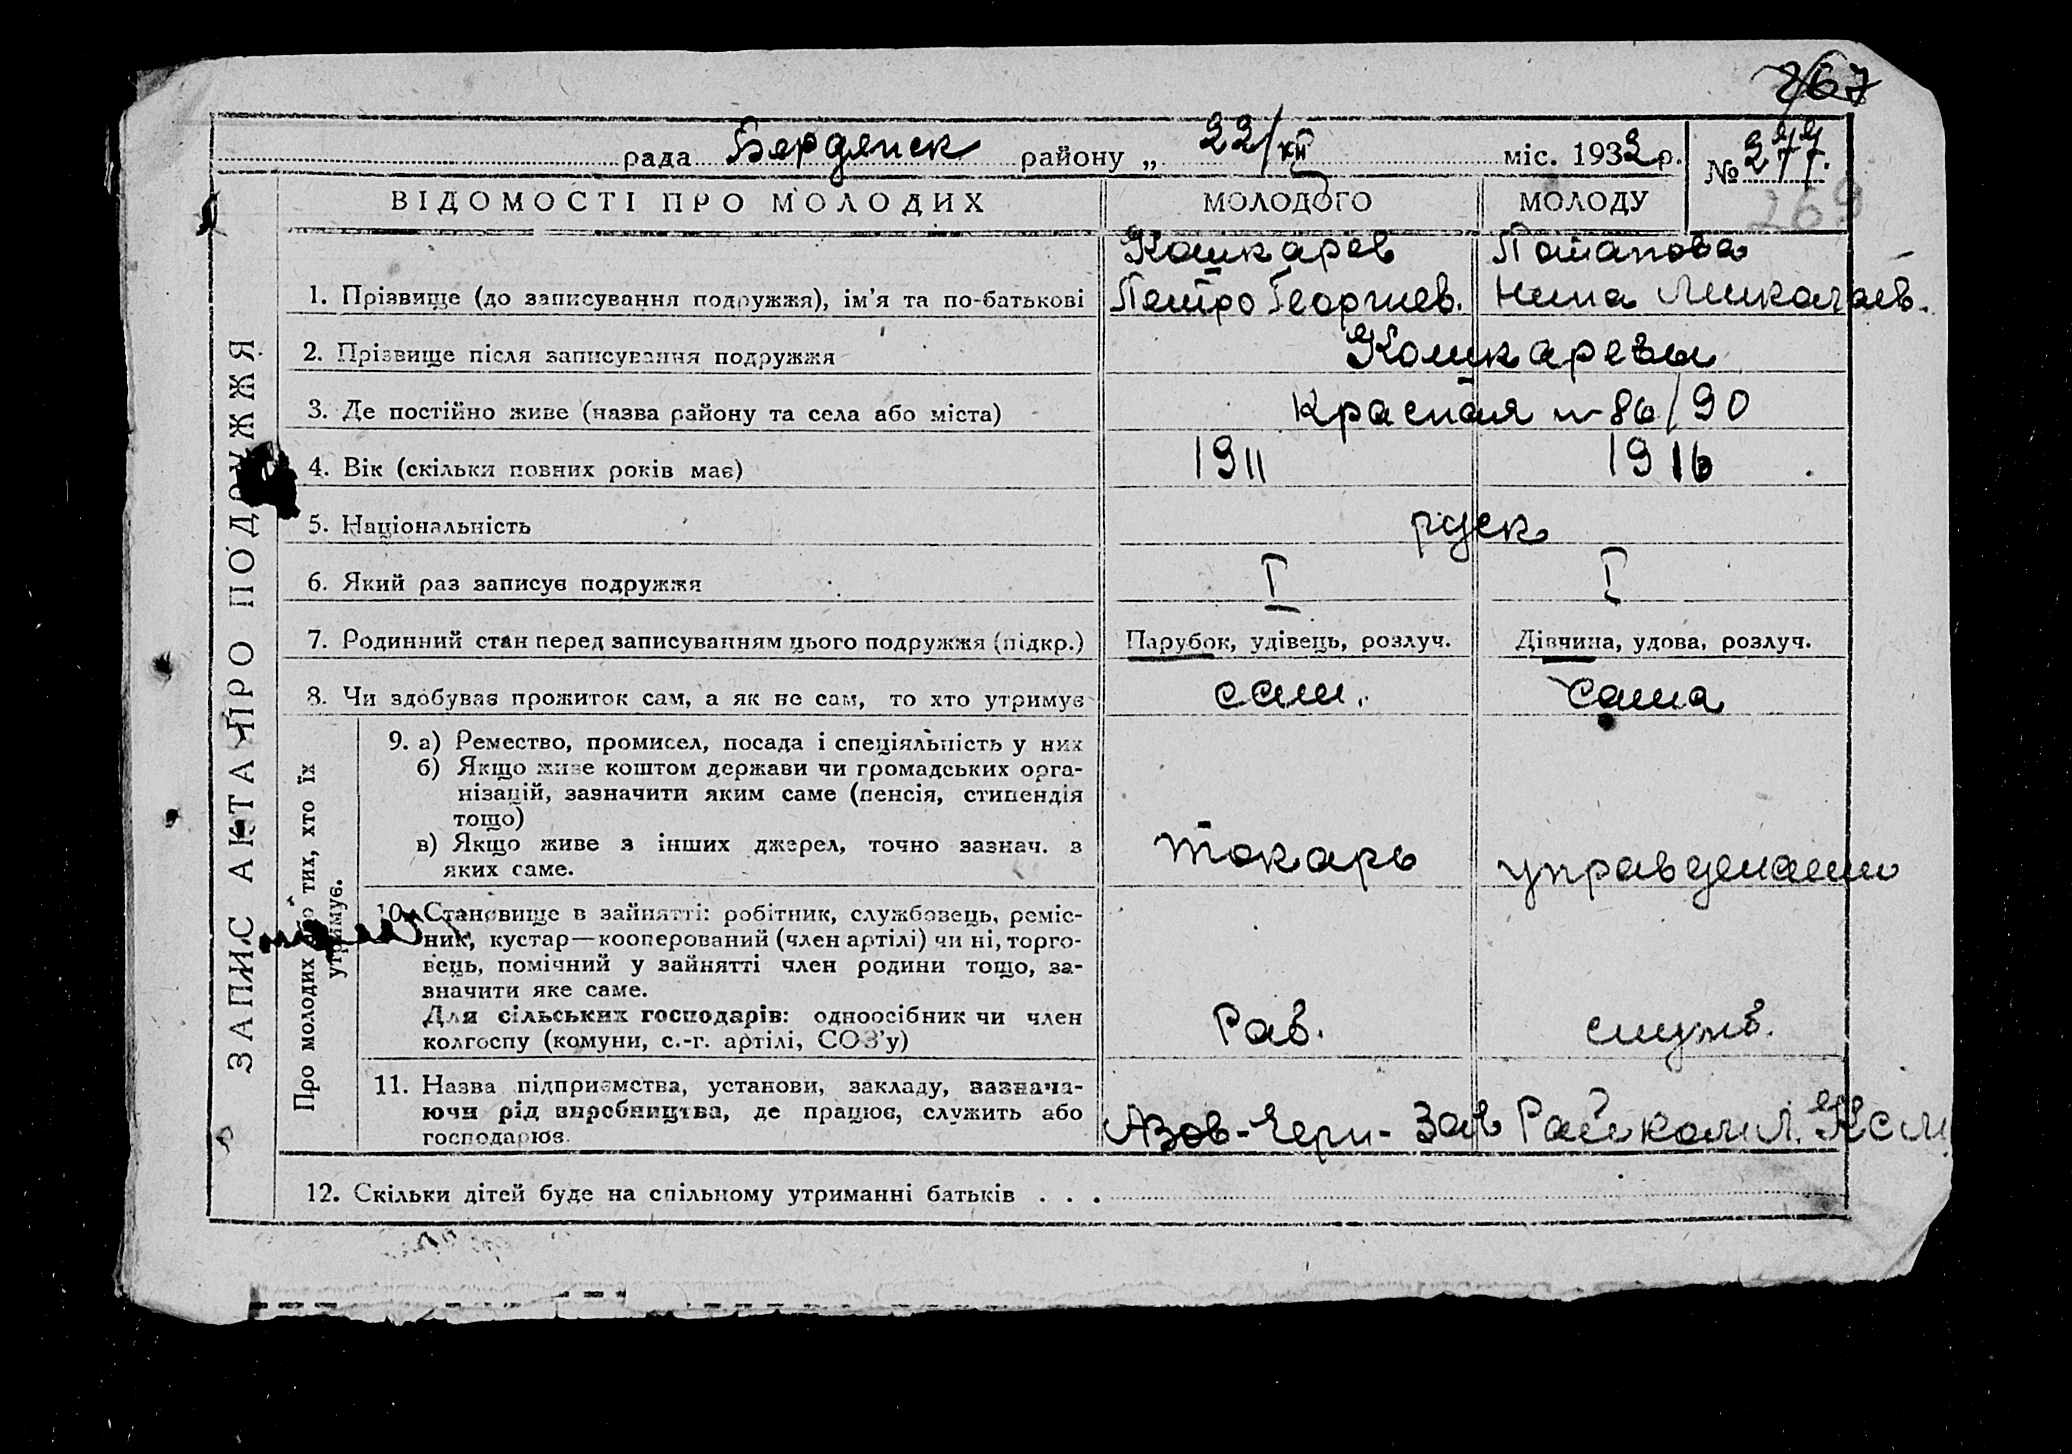 267
рада Бердянск району „ 22/XII міс. 1932 р. № 277.
269
ВІДОМОСТІ ПРО МОЛОДИХ МОЛОДОГО МОЛОДУ
Кошкарев Потапова
1. Прізвище (до записування подружжя), ім’я та по-батькові Петро Георгиев. Нина Миколаев.
2. Прізвище після записування подружжя Кошкаревы
3. Де постійно живе (назва району та села або міста) Красная № 86/90
4. Вік (скільки повних років має) 1911 1916
5. Національність русск
6. Який раз записує подружжя I I
7. Родинний стан перед записуванням цього подружжя (підкр.) Парубок, удівець, розлуч. Дівчина, удова, розлуч.
8. Чи здобував прожиток сам, а як не сам, то хто утримує сам. сама
9. а) Ремество, промисел, посада і спеціяльність у них
б) Якщо живе коштом держави чи громадських орга-
нізацій, зазначити яким саме (пенсія, стипендія
тощо)
в) Якщо живе з інших джерел, точно зазнач. з
яких саме. токарь управделами
10. Становище в зайнятті: робітник, службовець, реміс-
ник, кустар—кооперований (член артілі) чи ні, торго-
вець, помічний у зайнятті член родини тощо, за-
значити яке саме.
Для сільських господарів: одноосібник чи член
колгоспу (комуни, с.-г. артілі, СОЗ’у) Раб. служб.
11. Назва підприємства, установи, закладу, зазнача-
ючи рід виробництва, де працює, служить або
господарює. Азов-Черн-Зав Райком Л.КСМ
12. Скільки дітей буде на спільному утриманні батьків . . .
ЗАПИС АКТА ПРО ПОДРУЖЖЯ
Про молодих тих, хто їх
утримує.